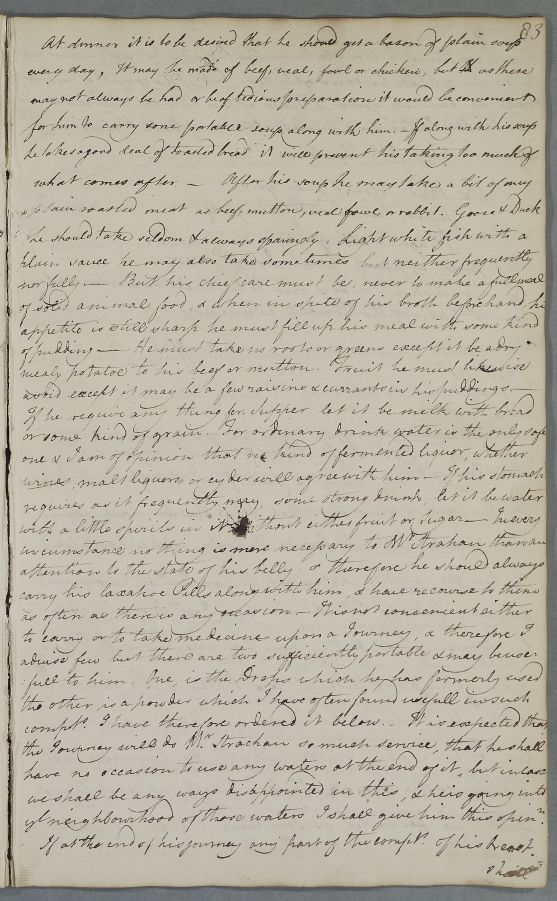 83
At dinner it is to be desired that he should get a bason of plain soup
every day, It may be made of beef, veal, fowl or chicken, but as these
may not always be had or be of tedious preparation it would be convenient
for him to carry some portable soup along with him. — If along with his soup
he takes a good deal of toasted bread it will prevent his taking too much of
what comes after — After his soup he may take a bit of any
plain roasted meat as beef, mutton, veal fowl or rabbit. Goose & Duck
he should take seldom & always sparingly. Light white fish with a
plain sauce he may also take sometimes but neither frequently
nor fully — But his chief care must be, never to make a full meal
of solid animal food, & when in spite of his broth beforehand his
appetite is still sharp he must fill up his meal with some kind
of pudding — He must take no roots or greens except it be a dry
mealy potatoe to his beef or mutton. Fruit he must likewise
avoid except it may be a few raisins & currants in his puddings —
If he require any thing for Supper let it be milk with bread
or some kind of grain. For ordinary drink water is the only safe
one & I am of opinion that no kind of fermented liquor, whether
wines, malt liquors or cyder will agree with him — If his stomach
requires as it frequently may some strong drink, let it be water
with a little spirits in it without either fruit or Sugar — In every
circumstance nothing is more necessary to Mr Strachan than an
attention to the state of his belly & therefore he should always
carry his laxative Pills along with him, & have recourse to them
as often as there is any occasion — It is not convenient either
to carry or to take medecine upon a Journey, & therefore I
advise few but there are two sufficiently portable & may be use:
:full to him. One, is the Drops which he has formerly used
the other, is a powder which I have often found usefull in such
compts. I have therefore ordered it below. — It is expected that
the Journey will do Mr Strachan so much service, that he shall
have no occasion to use any waters at the end of it, but in case
we shall be any ways disappointed in this, & he is going into
ye neighbourhood of those waters I shall give him this opinn.
If at the end of his journey any part of the compt. of his breast
shall